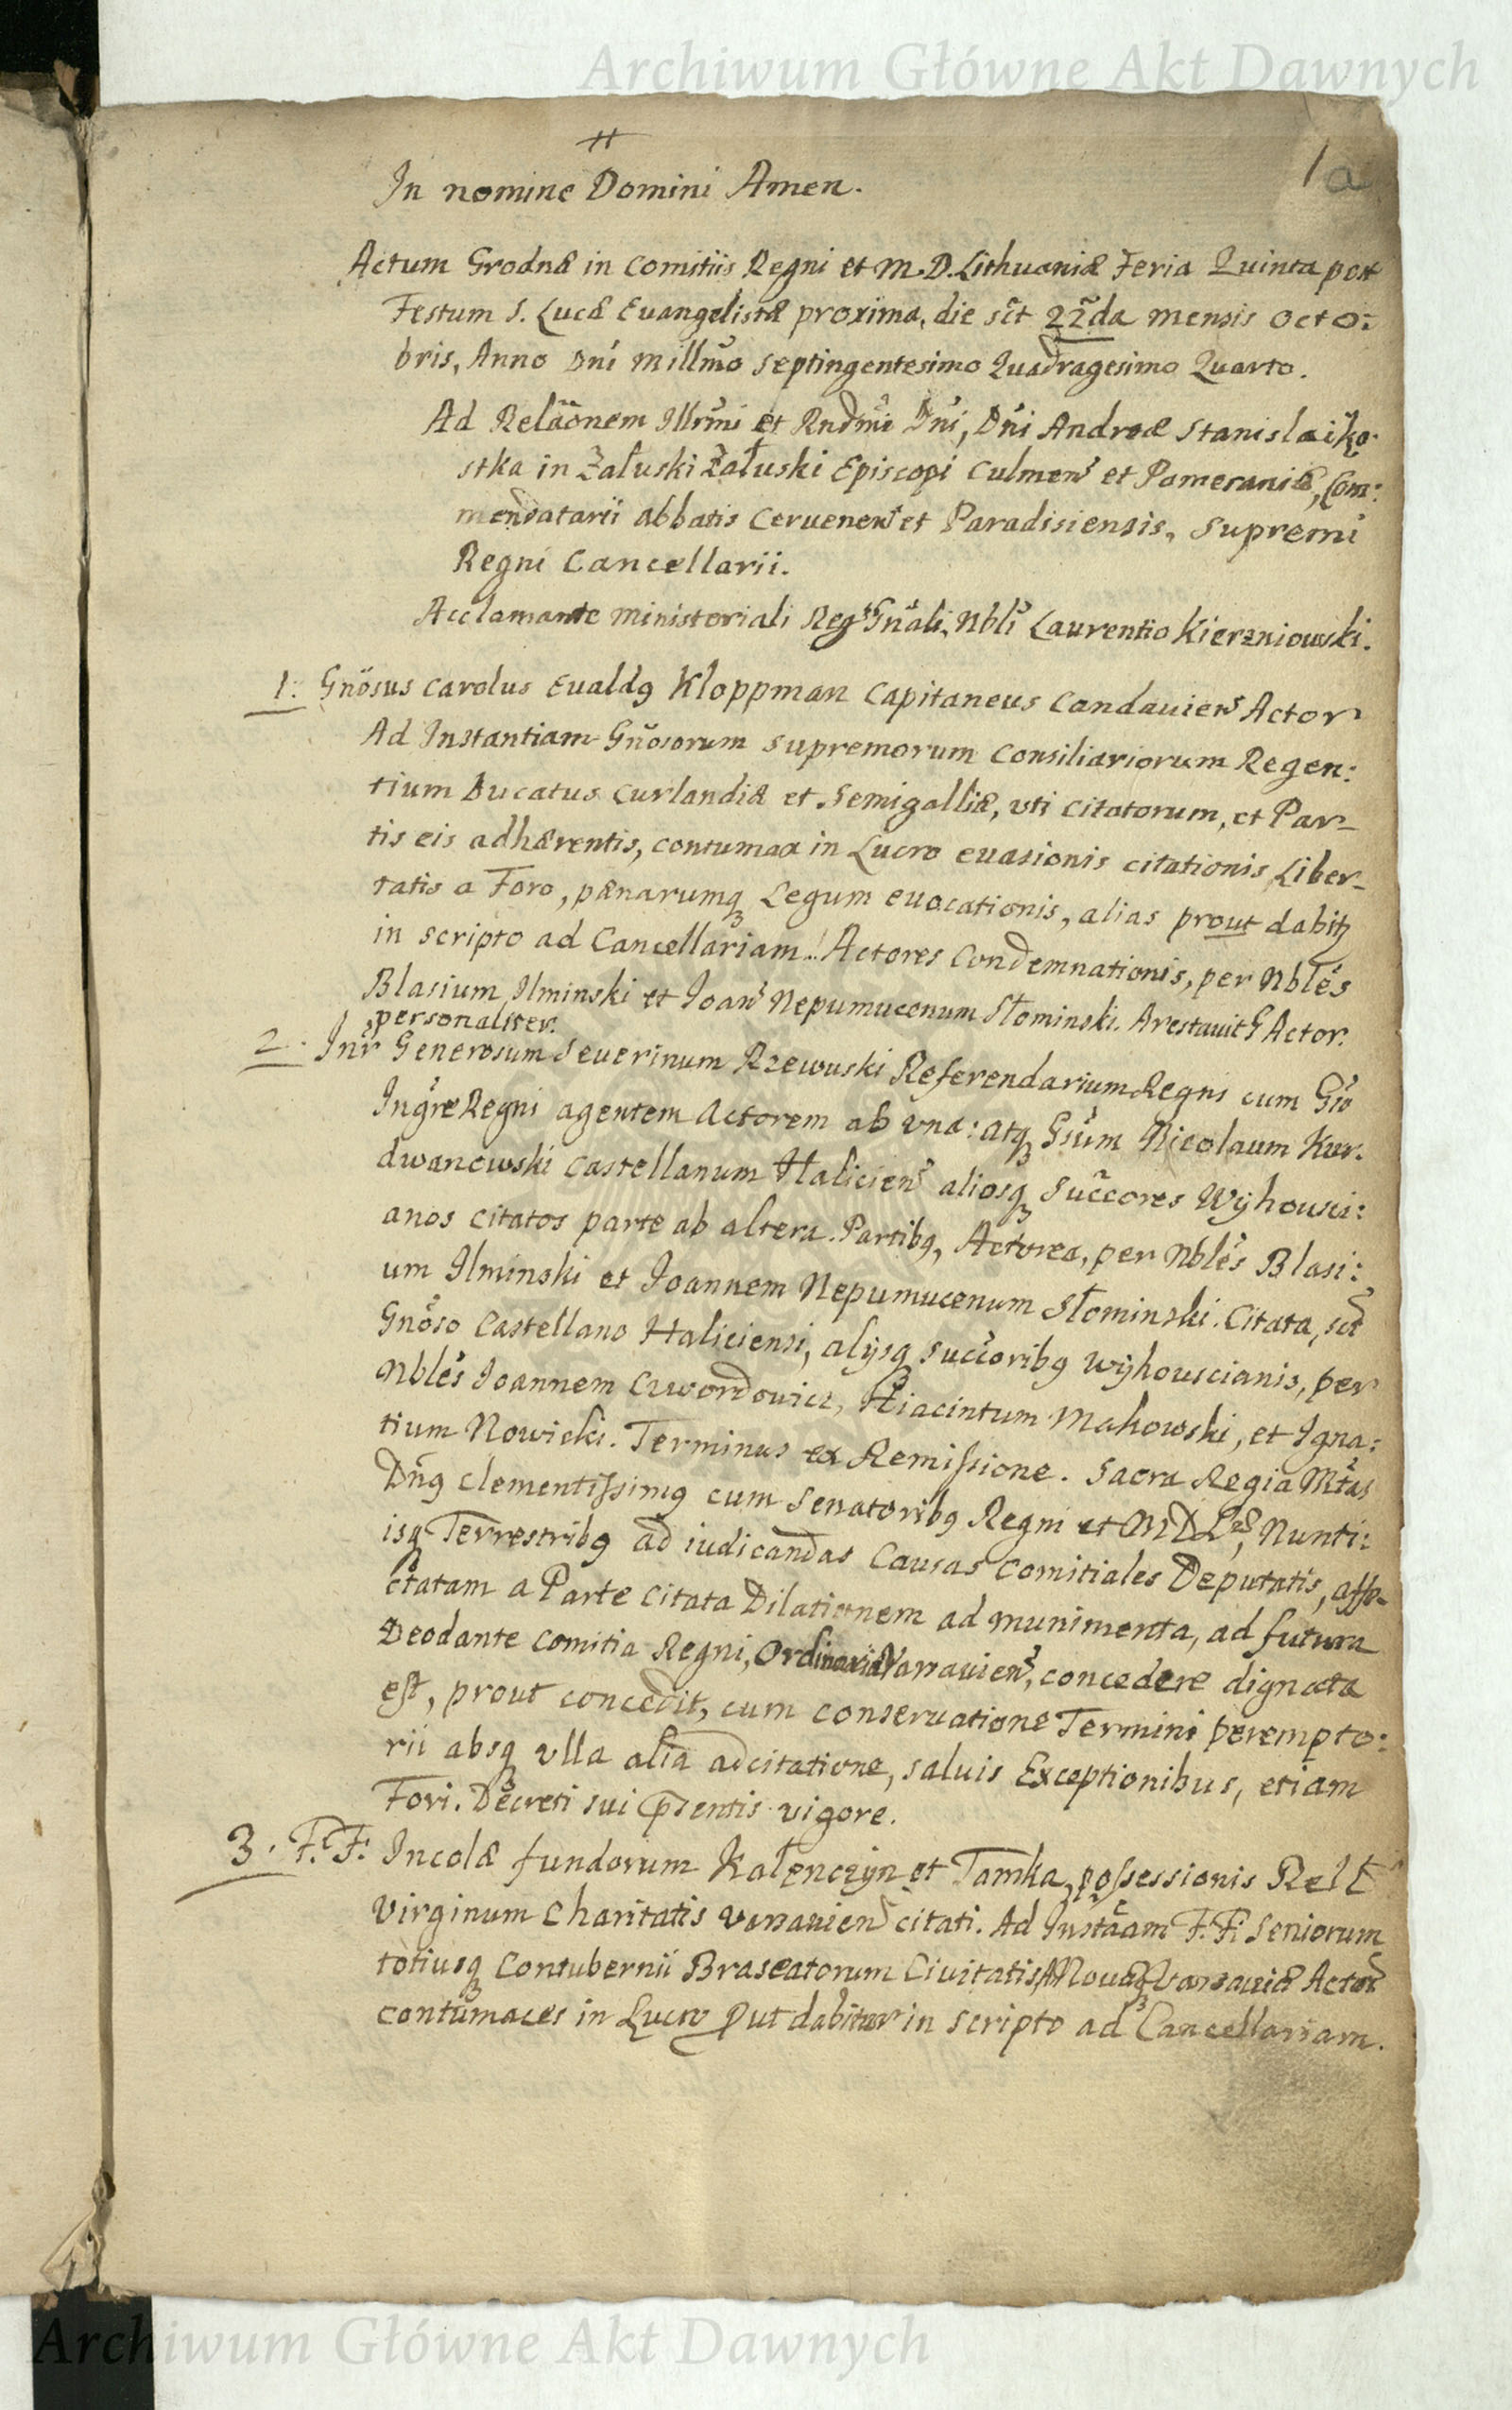 Archiwum Główne Akt Dawnych
1a
In nomine Domini Amen.
Actum Grodnæ in Comitiis Regni et M.D. Lithuaniæ Feria Quinta post
Festum S. Lucæ Evangelistæ proxima, die sc̃t 22da mensis Octo:
bris, Anno Dni Millmo Septingentesimo Quadragesimo Quarto.
Ad Relãonem Illrmi et Rndmi Dni, Dni Andreæ Stanislai Ko:
stka in Załuski Załuski Episcopi Culmens et Pomeraniæ, Com:
mendatarii abbatis Ceruenens et Paradisiensis, Supremi
Regni Cancellarii.
Acclamante ministeriali Reg Gnãli, Nbli Laurentio Kierzniowski.
1: Gnõsus Carolus Evaldq Kloppman Capitaneus Candauiens Actor
Ad Instantiam Gnõsorum Supremorum Consiliariorum Regen:
tium Ducatus Curlandiæ et Semigalliæ, vti citatorum, et Par-
tis eis adhærentis, contumax in Lucro euasionis citationis Liber-
tatis a Foro, pænarumq Legum euocationis, alias prout dabitz
in scripto ad Cancellariam. Actores Condemnationis, per Nbles
Blasium Ilminski et Joans Nepumucenum Słominski. Arestauit G Actor.
personaliter.
2. Intr Generosum Seuerinum Rzewuski Referendarium Regni cum Gso
Instigre Regni agentem Actorem ab vna: atq Gsum Nicolaum Kur.
dwanowski Castellanum Haliciens aliosq Succores Wyhousci:
anos citatos parte ab altera. Partibq, Actorea, per Nbles Blasi:
um Ilminski et Joannem Nepumucenum Słominski. Citata, sct
Gnoso Castellano Haliciensi, alijsq Succoribq Wyhouscianis, per
Nbles Joannem Cwordowicz, Hiacintum Makowski, et Igna:
tium Nowicki. Terminus ex Remissione. Sacra Regia Mtas
Dnq Clementissimq cum Senatoribq Regni et M D L, Nunti:
isq Terrestribq ad iudicandas Causas Comitiales Deputatis, affe-
ctatam a Parte Citata Dilationem ad munimenta, ad futura
Deodante Comitia Regni, Ordinaria Varsauiens, concedere dignata
est, prout concedit, cum conseruatione Termini perempto:
rii absq vlla alia adcitatione, saluis Exceptionibus, etiam
Fori. Decreti sui prsentis vigore.
3. F.F. Incolæ fundorum Kałęnczyn et Tamka, possessionis Rel
Virginum Charitatis Varsauiens citati. Ad Instãam F.F. Seniorum
totiusq Contubernii Braseatorum Ciuitatis Nouæ Varsauiæ Actor
contumaces in Lucro put dabitur in scripto ad Cancellariam.
Archiwum Główne Akt Dawnych